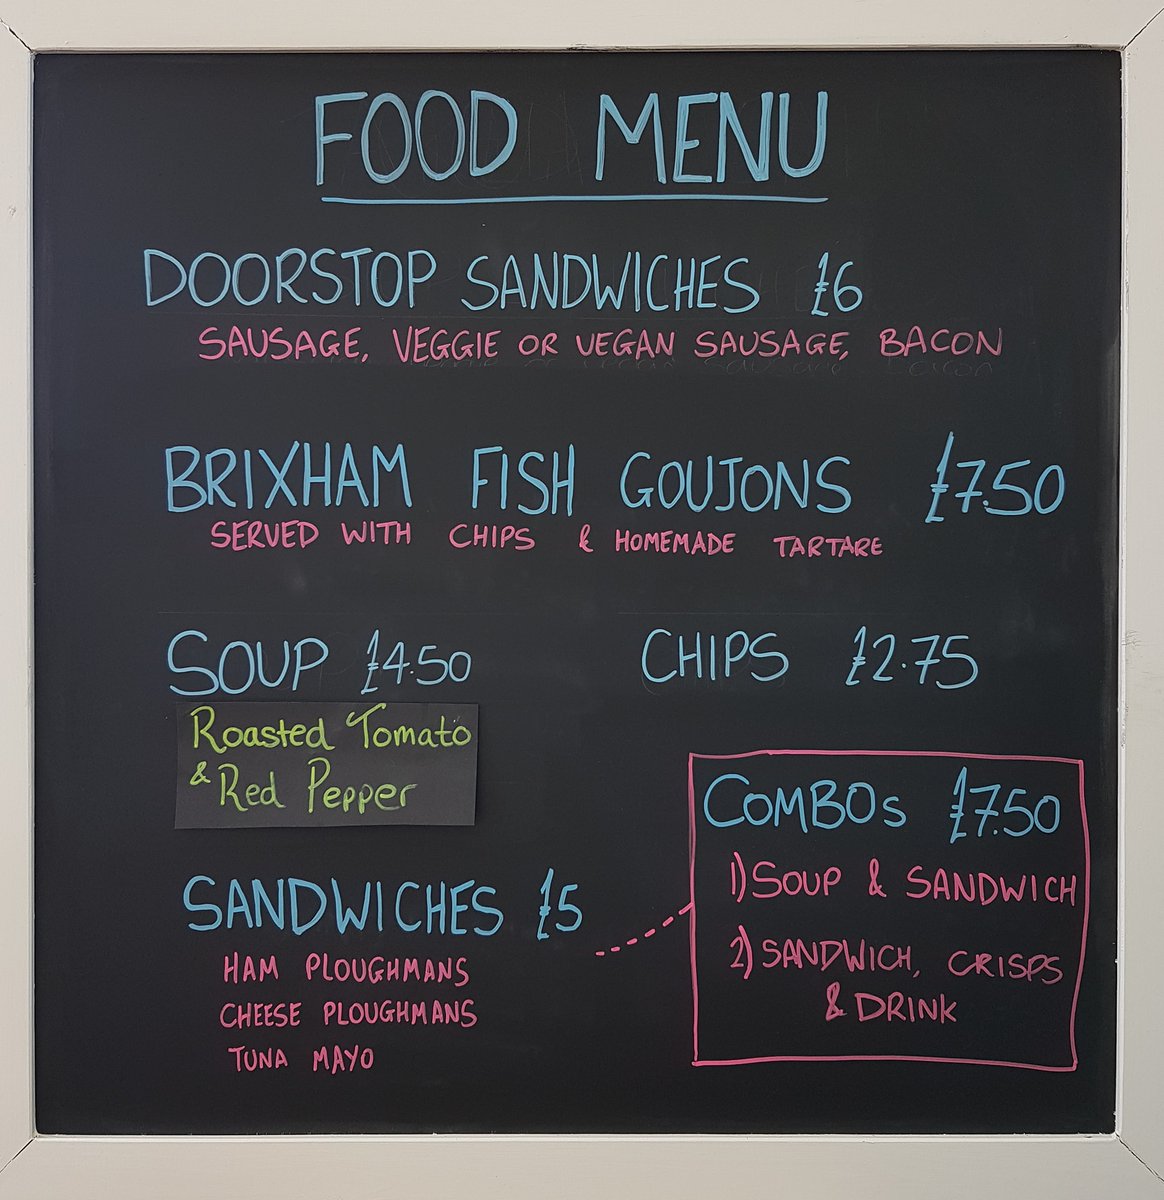 FOOD MENU
DOORSTOP SANDWICHES £6
SAUSAGE, VEGGIE OR VEGAN SAUSAGE, BACON
BRIXHAM FISH GOUJONS £7.50
SERVED WITH CHIPS & HOMEMADE TARTARE
SOUP £4.50
Roasted Tomato
& Red Pepper
CHIPS £2.75
SANDWICHES £5
HAM PLOUGHMANS
CHEESE PLOUGHMANS
TUNA MAYO
COMBOs £7.50
1) SOUP & SANDWICH
2) SANDWICH, CRISPS
& DRINK